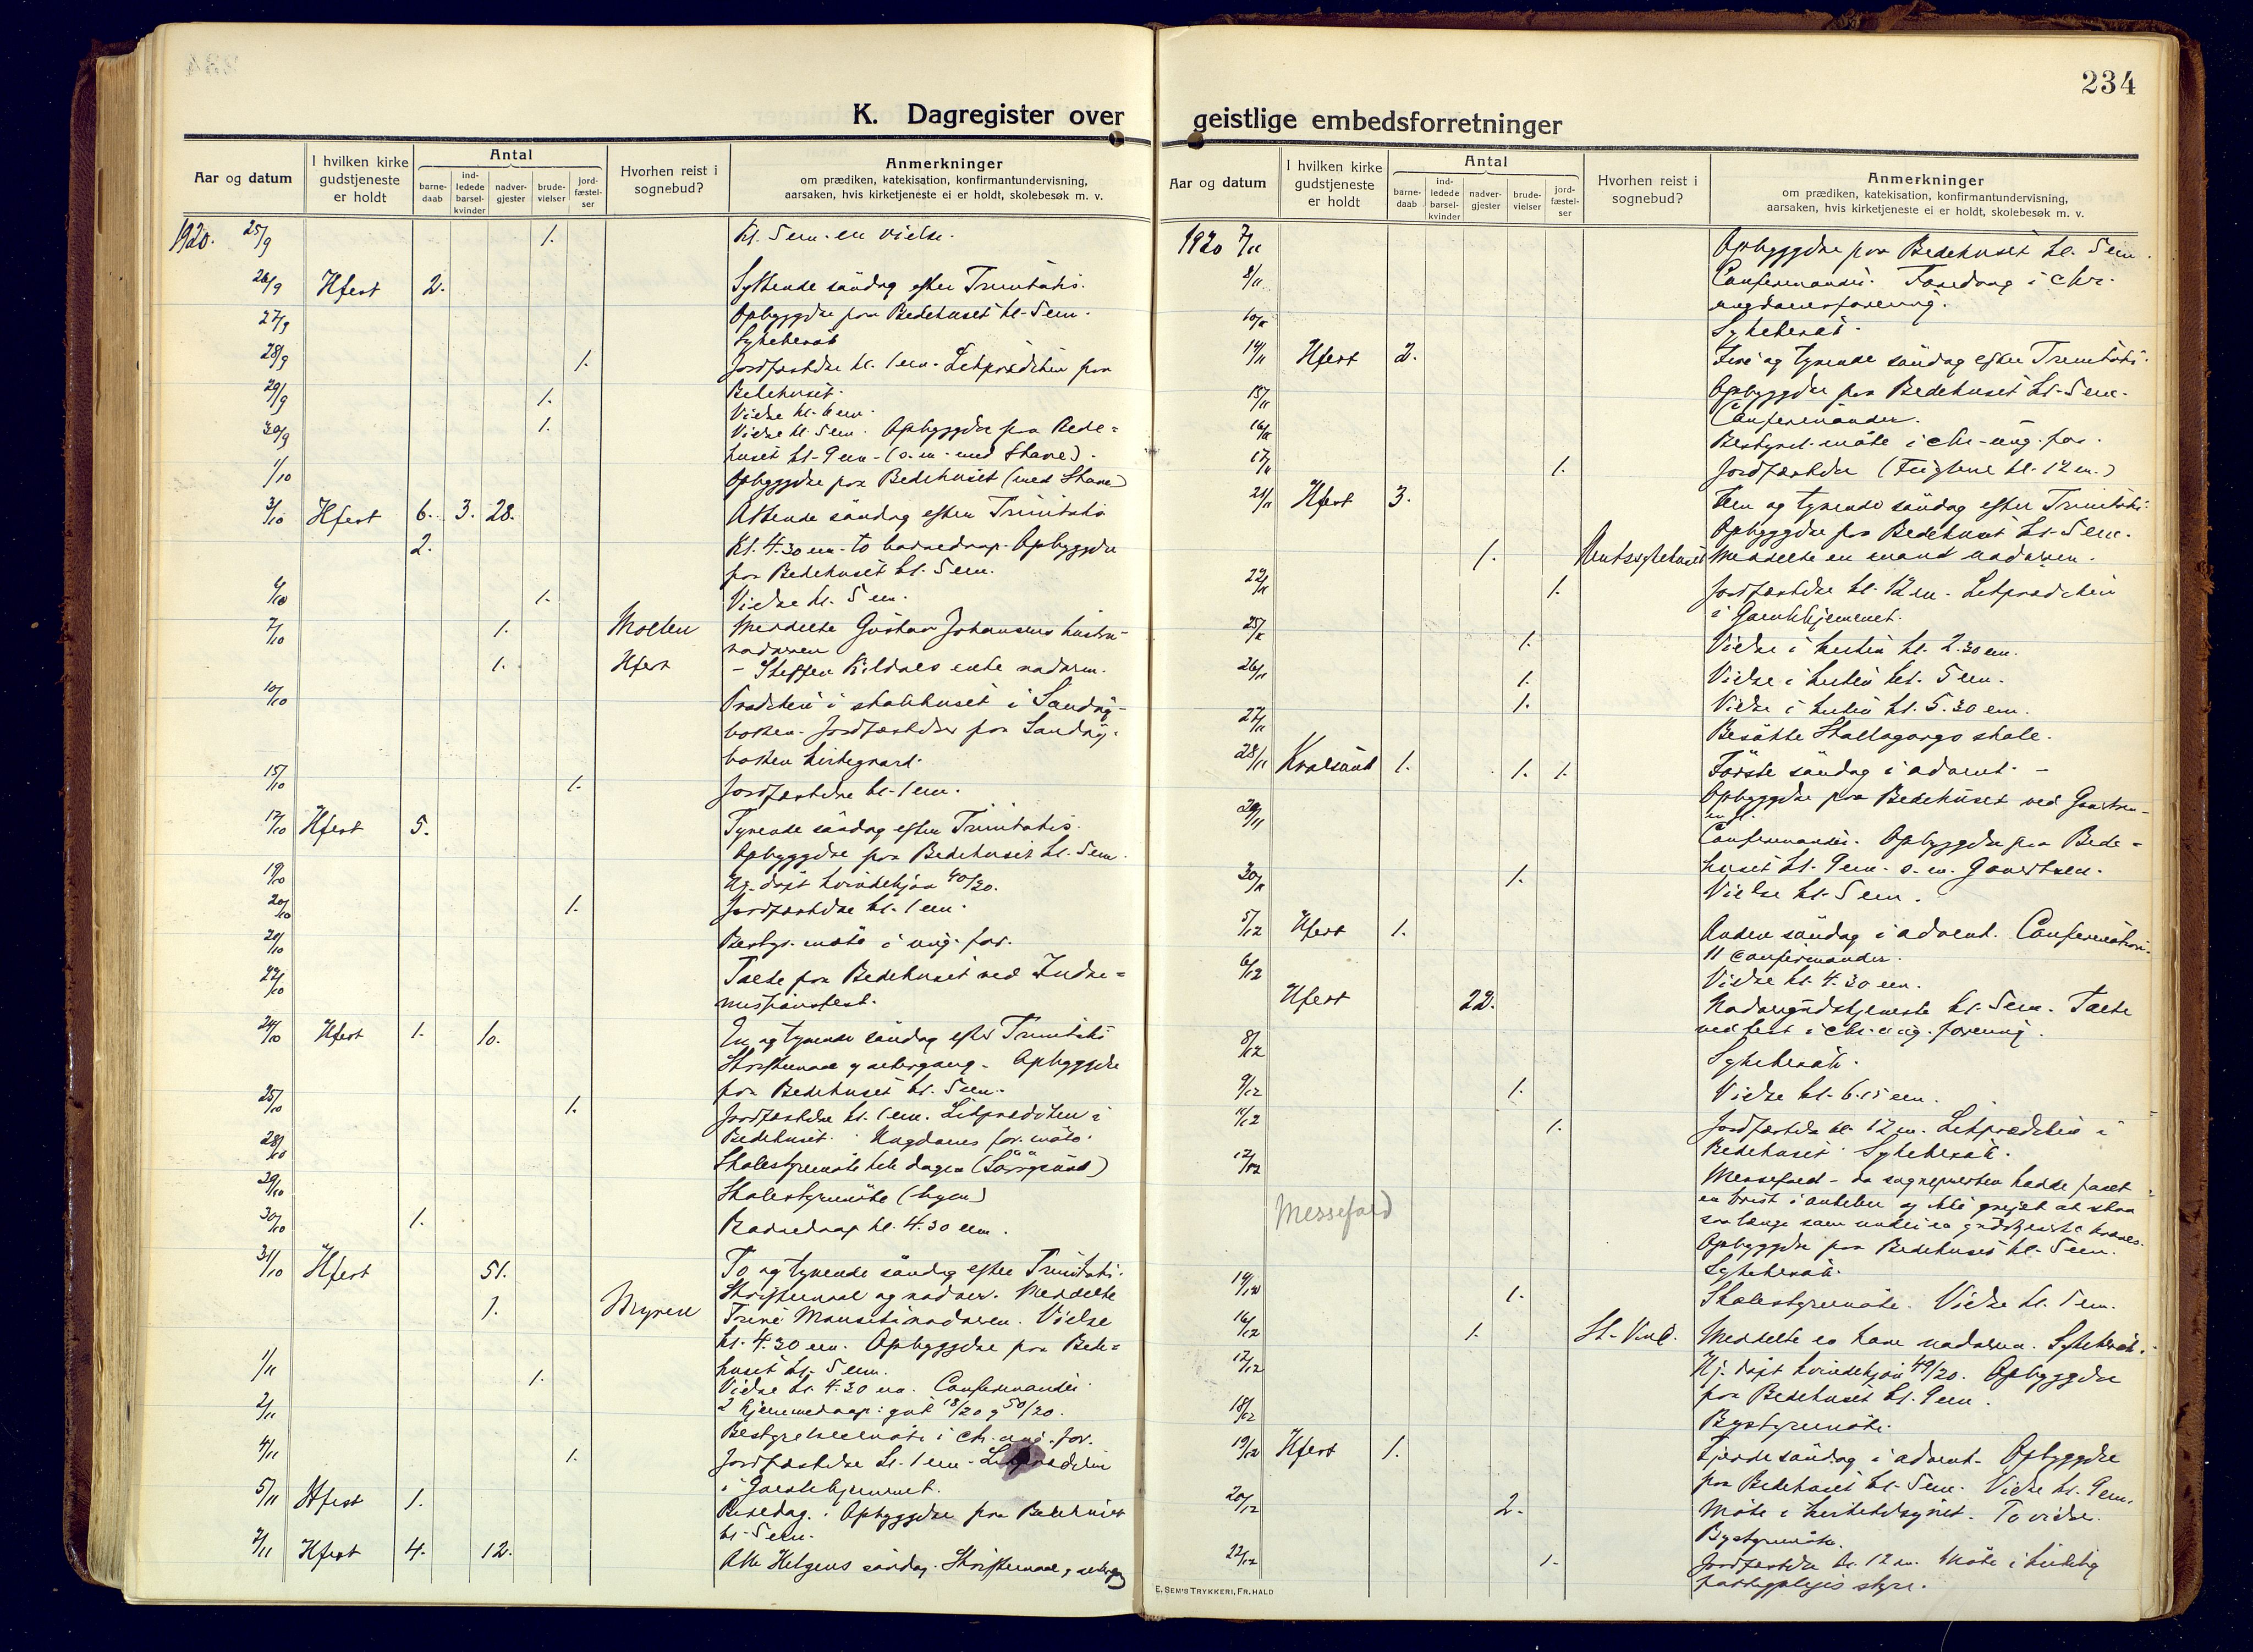 234
K. Dagregister over
geistlige embedsforretninger
Aar og datum
I hvilken kirke
gudstjeneste
er holdt
Antal
barne-
daab
ind-
ledede
barsel-
kvinder
nadver-
gjester
brude-
vielser
jord-
fæstel-
ser
Hvorhen reist i
sognebud?
Anmerkninger
om prædiken, katekisation, konfirmantundervisning,
aarsaken, hvis kirketjeneste ei er holdt, skolebesøk m. v.
1920. 25/9 1. Kl. 5 em. en vielse.
26/9 Hfest 2. Syttende søndag efter Trinitatis.
27/9 Opbyggelse paa Bedehuset kl. 5 em.
Sykebesøk
28/9 1. Jordfæstelse kl. 1 em. Likprædiken paa
Bedehuset.
29/9 1. Vielse kl. 6 em.
30/9 1. Vielse kl. 5 em. Opbyggelse paa Bede=
huset kl. 9 em. (s. m. med Skare).
1/10 Opbyggelse paa Bedehuset (med Skare)
3/10 Hfest 6. 3. 28. Attende søndag efter Trinitatis
2. Kl. 4.30 em. to barnedaap. Opbyggelse
paa Bedehuset kl. 5 em.
6/10 1. Vielse kl. 5 em.
7/10 1. Molten Meddelte Gustav Johansens hustru
nadveren
1. Hfest - Steffen Kildals enke nadveren.
10/10 Prædiken i skolehuset i Sandøy-
botten. Jordfæstelser paa Sandøy-
botten kirkegaard.
15/10 1. Jordfæstelse kl. 1 em.
17/10 Hfest 5. Tyvende søndag efter Trinitatis.
Opbyggelse paa Bedehuset kl. 5 em.
19/10 Hj. døpt kvindekjøn 40/20.
20/10 1. Jordfæstelse kl. 1 em.
21/10 Bestyr. møte i ung. for.
22/10 Talte paa Bedehuset ved Indre=
missionsfest.
24/10 Hfest 1. 10. En og tyvende søndag efter Trinitatis
Skriftemaal og altergang. Opbyggelse
paa Bedehuset kl. 5 em.
25/10 1. Jordfæstelse kl. 1 em. Likprædiken i
Bedehuset. Ungdoms for. møte.
28/10 Skolestyremøte hele dagen (Sørøysund)
29/10 Skolestyremøte (byen)
30/10 1. Barnedaap kl. 4.30 em.
31/10 Hfest 51. To og tyvende søndag efter Trinitatis.
Skriftemaal og nadver. Meddelte
1. Myren Trine nadveren. Vielse
kl. 4.30 em. Opbyggelse paa Bede=
huset kl. 5 em.
1/11 1. Vielse kl. 4.30 em. Confirmander.
2/11 2 hjemmedaap: gut 18/20 og 50/20.
Bestyrelsesmøte i chr. ung. for.
4/11 1. Jordfæstelse kl. 1 em. Likprædiken
i Gamlehjemmet.
5/11 Hfest 1. Bededag. Opbyggelse paa Bedehuset
kl. 5 em.
7/11 Hfest 4. 12. Alle Helgens søndag. Skriftemaal og altergang
Aar og datum
I hvilken kirke
gudstjeneste
er holdt
Antal
barne-
daab
ind-
ledede
barsel-
kvinder
nadver-
gjester
brude-
vielser
jord-
fæstel-
ser
Hvorhen reist i
sognebud?
Anmerkninger
om prædiken, katekisation, konfirmantundervisning,
aarsaken, hvis kirketjeneste ei er holdt, skolebesøk m. v.
1920 7/11 Opbyggelse paa Bedehuset kl. 5 em.
8/11 Confirmander. Foredrag i chr.
ungdomsforening.
10/11 Sykebesøk.
14/11 Hfest 2. Fire og tyvende søndag efter Trinitatis.
Opbyggelse paa Bedehuset kl. 5 em.
15/11 Confirmander.
16/11 Bestyrel. møte i chr. ung. for.
17/11 1. Jordfæstelse (Fuglene kl. 12 m.)
21/11 Hfest 3. Fem og tyvende søndag efter Trinitatis.
Opbyggelse paa Bedehuset kl. 5 em.
1. Amtssykehuset Meddelte en mand nadveren.
22/11 1. Jordfæstelse kl. 12 m. Likprædiken
i Gamlehjemmet.
25/11 1. Vielse i kirken kl. 2.30 em.
26/11 1. Vielse i kirken kl. 5 em.
1. Vielse i kirken kl. 5.30 em.
27/11 Besøkte Skallagangs skole.
28/11 Kvalsund 1. 1. 1. Første søndag i advent. -
Opbyggelse paa Bedehuset ved
29/11 Confirmander. Opbyggelse paa Bede=
huset kl. 9 em. s. m. Gaventsen.
30/11 1. Vielse kl. 5 em.
5/12 Hfest 1. Anden søndag i advent. Confirmation.
11 confirmander.
6/12 Vielse kl. 4.30 em.
Hfest 22. Nadvergudstjeneste kl. 5 em. Talte
ved fest i chr. ung. forening.
8/12 Sykebesøk.
9/12 1. Vielse kl. 6.15 em.
11/12 1. Jordfæstelse kl. 12 m. Likprædiken i
Bedehuset. Sykebesøk.
12/12 Messefald Messefald - da sogneprester hadde faaet
en brist i anklen og ikke greiet at staa
saa længe som under en gudstjeneste kræves.
Opbyggelse paa Bedehuset kl. 5 em.
Sykebesøk.
14/12 1. Skolestyremøte. Vielse kl. 1 em.
16/12 1. St. Vinc. Meddelte en kone nadveren. Sykebesøk.
17/12 Hj. døpt kvindekjøn 49/20. Opbyggelse
paa Bedehuset kl. 9 em.
18/12 Bystyremøte.
19/12 Hfest 1. Fjerde søndag i advent. Opbyggelse
paa Bedehuset kl. 5 em. Vielse kl. 9 em.
20/12 2. Møte i kirketilsynet. To vielser.
Bystyremøte.
22/12 1. Jordfæstelse kl. 12 m. Møte i
fattigpleies styre.
E. SEM'S TRYKKERI, FR. HALD